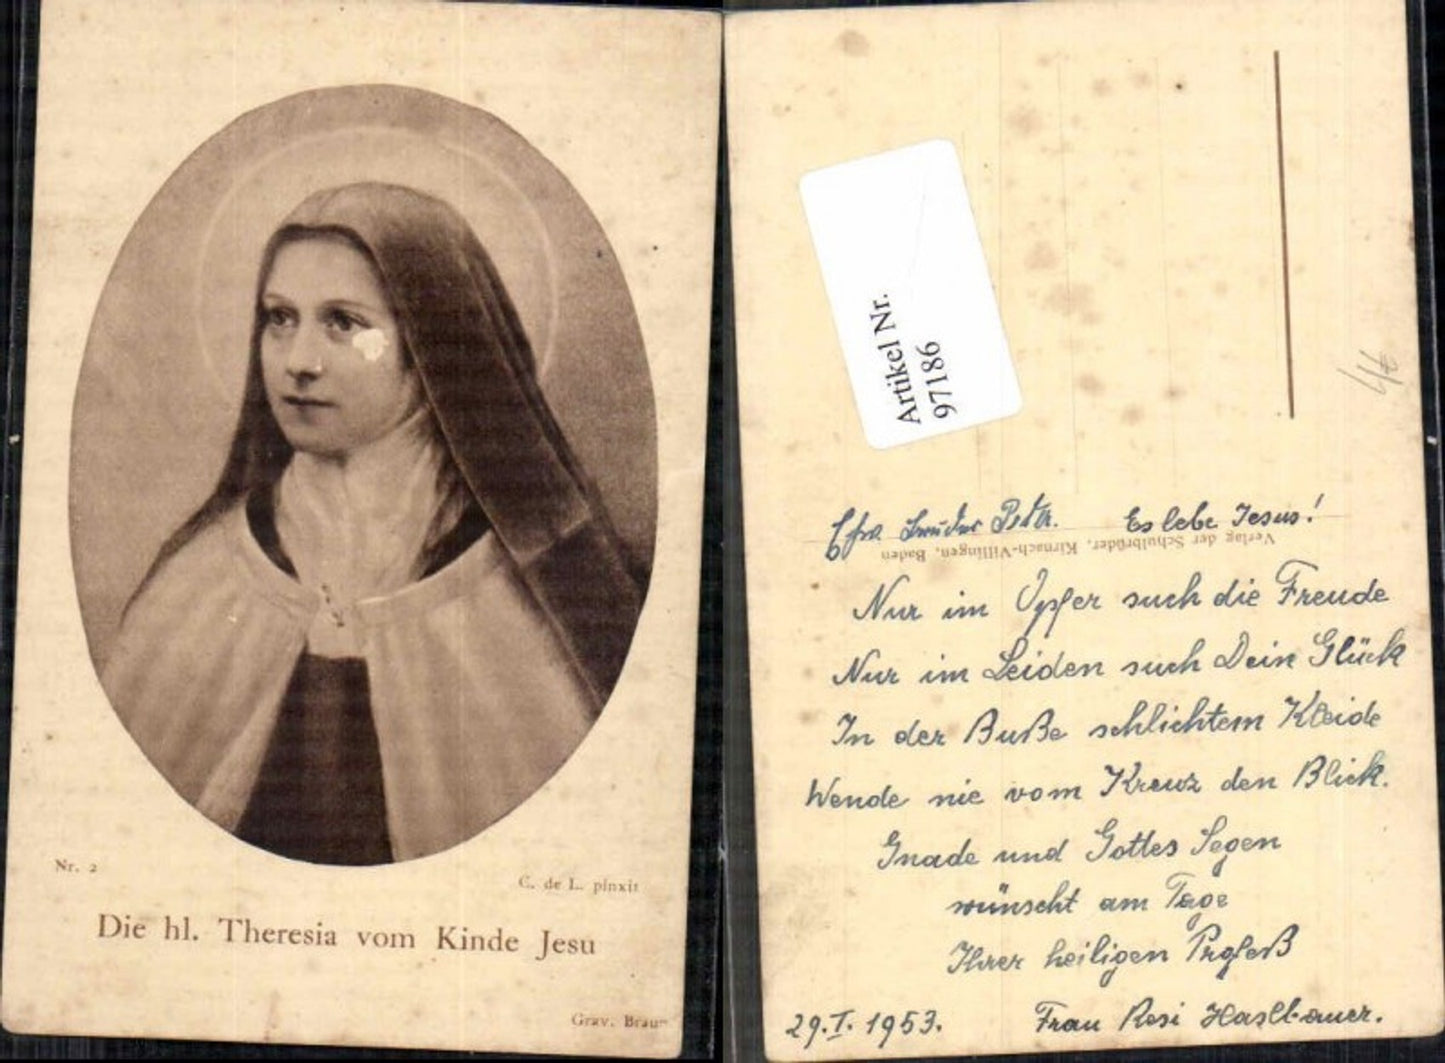 Nr. 2
C. de L. pinxit
Die hl. Theresia vom Kinde Jesu
Grav. Braun
Artikel Nr.
97186
4€
Bruder Petr. Es lebe Jesus!
Verlag der Schulbrüder, Kirnach-Villingen, Baden
Nur im Opfer such die Freude
Nur im Leiden such Dein Glück
In der Buße schlichtem Kleide
Wende nie vom Kreuz den Blick.
Gnade und Gottes Segen
wünscht am Tage
Ihrer heiligen Profeß
29.I.1953. Frau Resi Haslbauer.